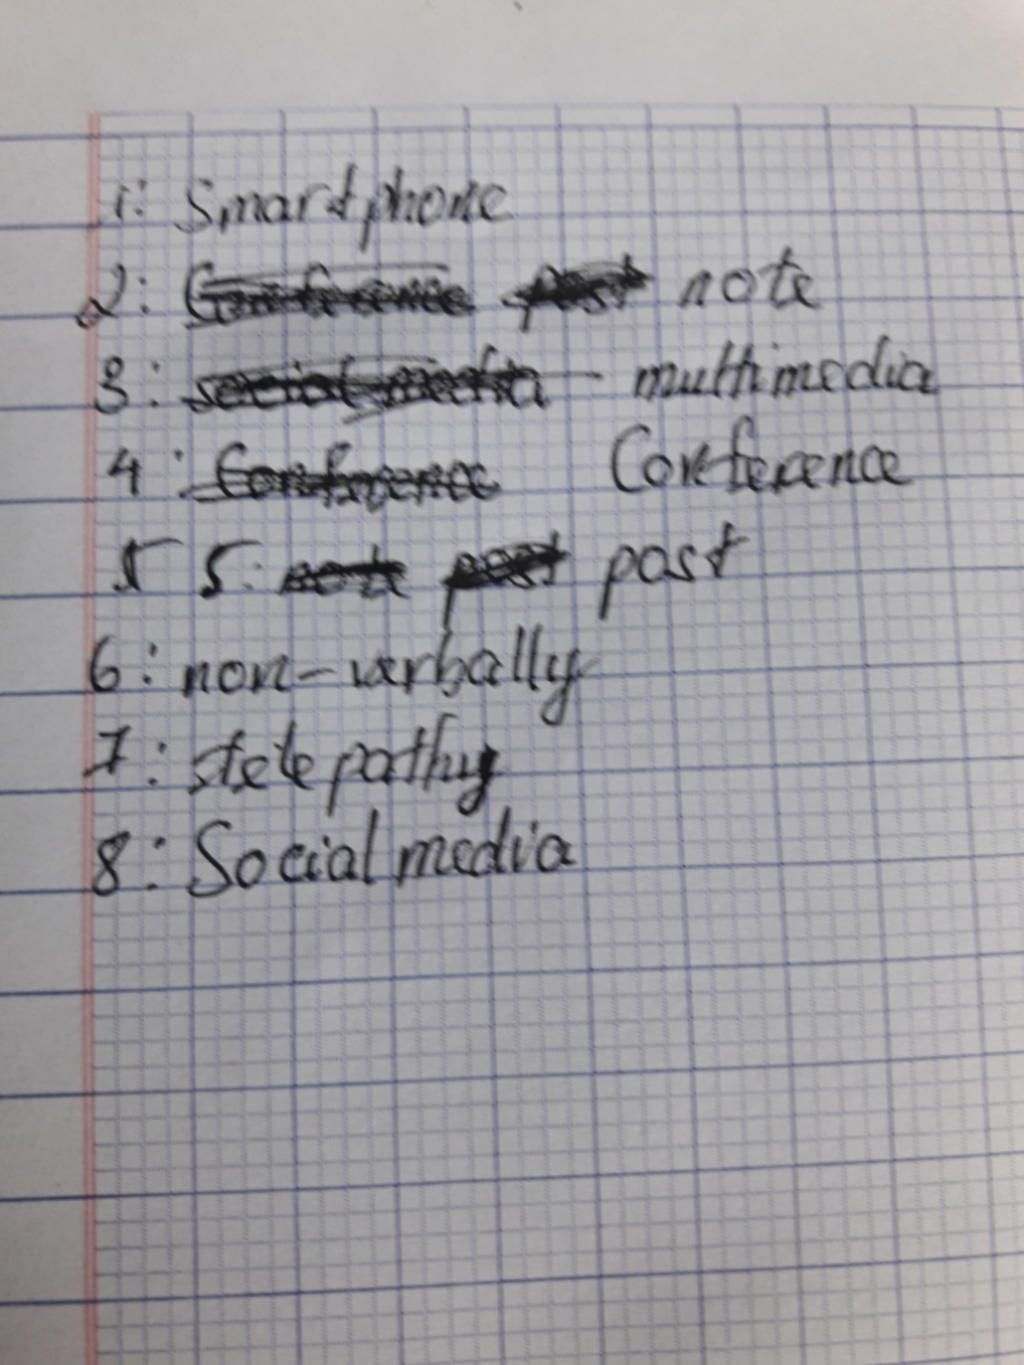 1: Smartphone
2: Conference post note
3: social media - multimedia
4: Conference Conference
5 5: note post post
6: non-verbally
7: stelepathy
8: Social media